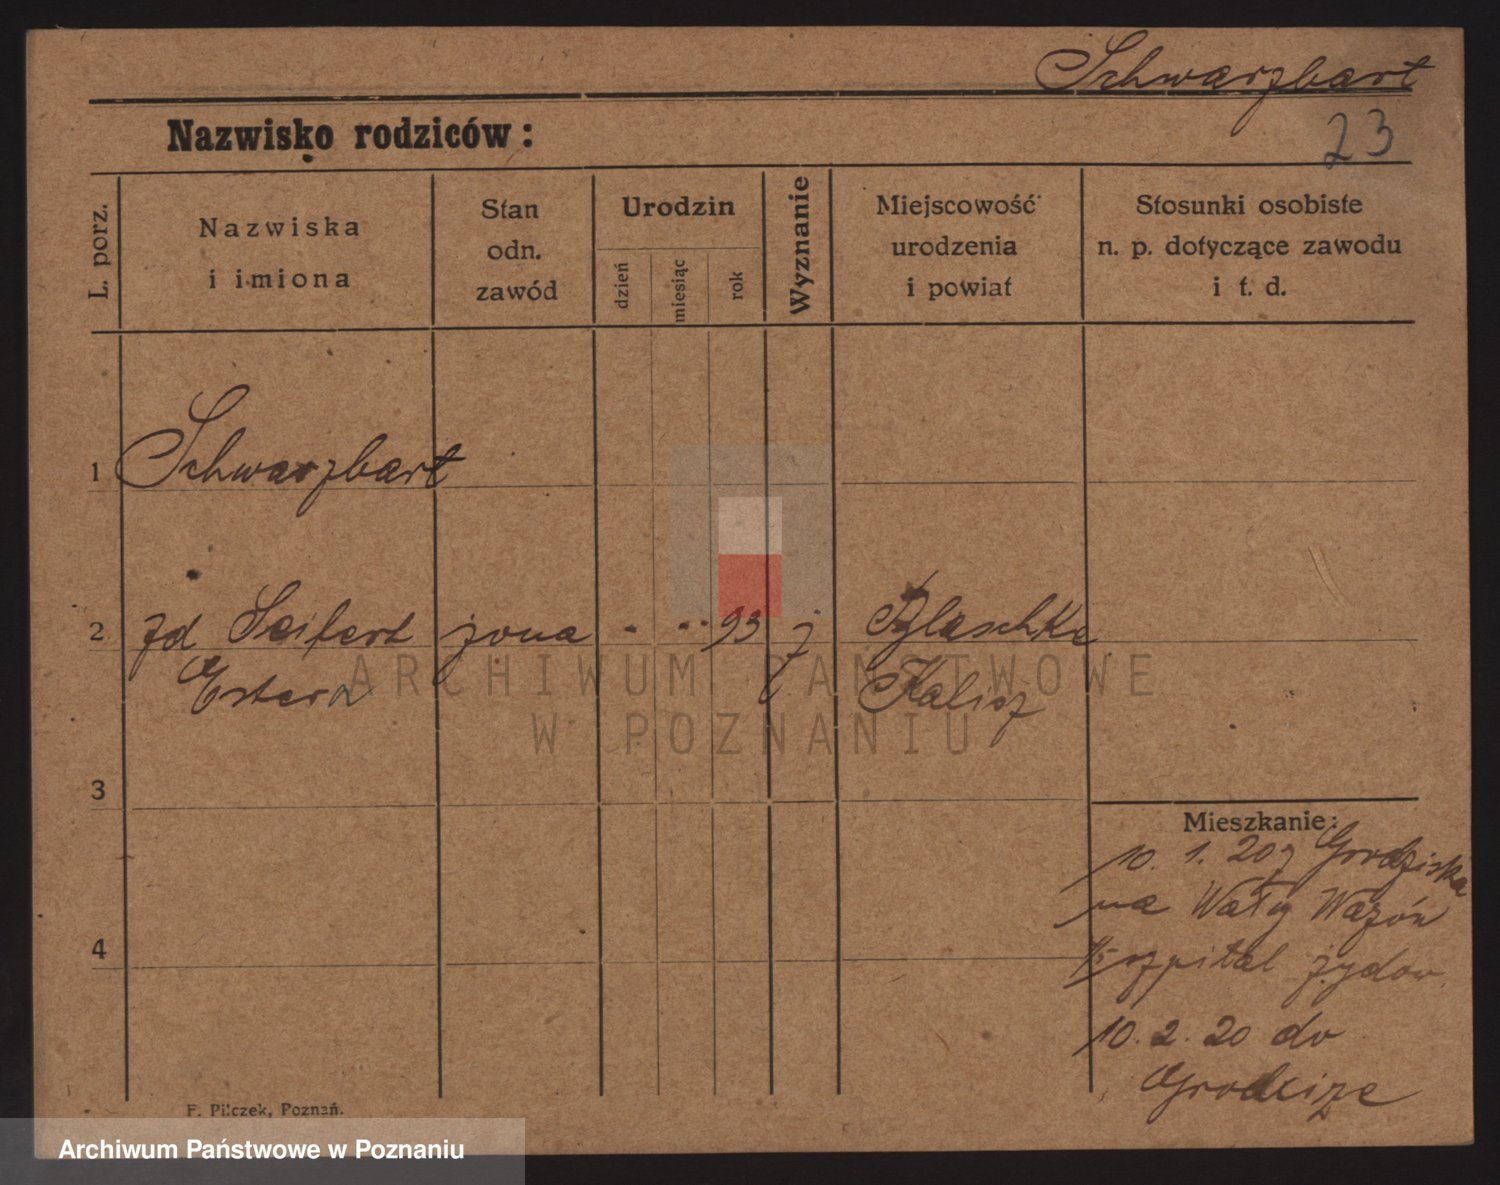 Schwarzbart
23
Nazwisko rodziców:
L. porz.
Nazwiska
i imiona
Stan
odn.
zawód
Urodzin
dzień
miesiąc
rok
Wyznanie
Miejscowość
urodzenia
i powiat
Stosunki osobiste
n. p. dotyczące zawodu
i t. d.
1
Schwarzbart
2
zd Seifert żona 93 j Blaschke
Estera Kalisz
ARCHIWUM PAŃSTWOWE
W POZNANIU
3
Mieszkanie:
10. 1. 20 z Grodziska
na Wały Wazów
szpital żydow.
4
10. 2. 20 do
Grodzisze
F. Pilczek, Poznań.
Archiwum Państwowe w Poznaniu